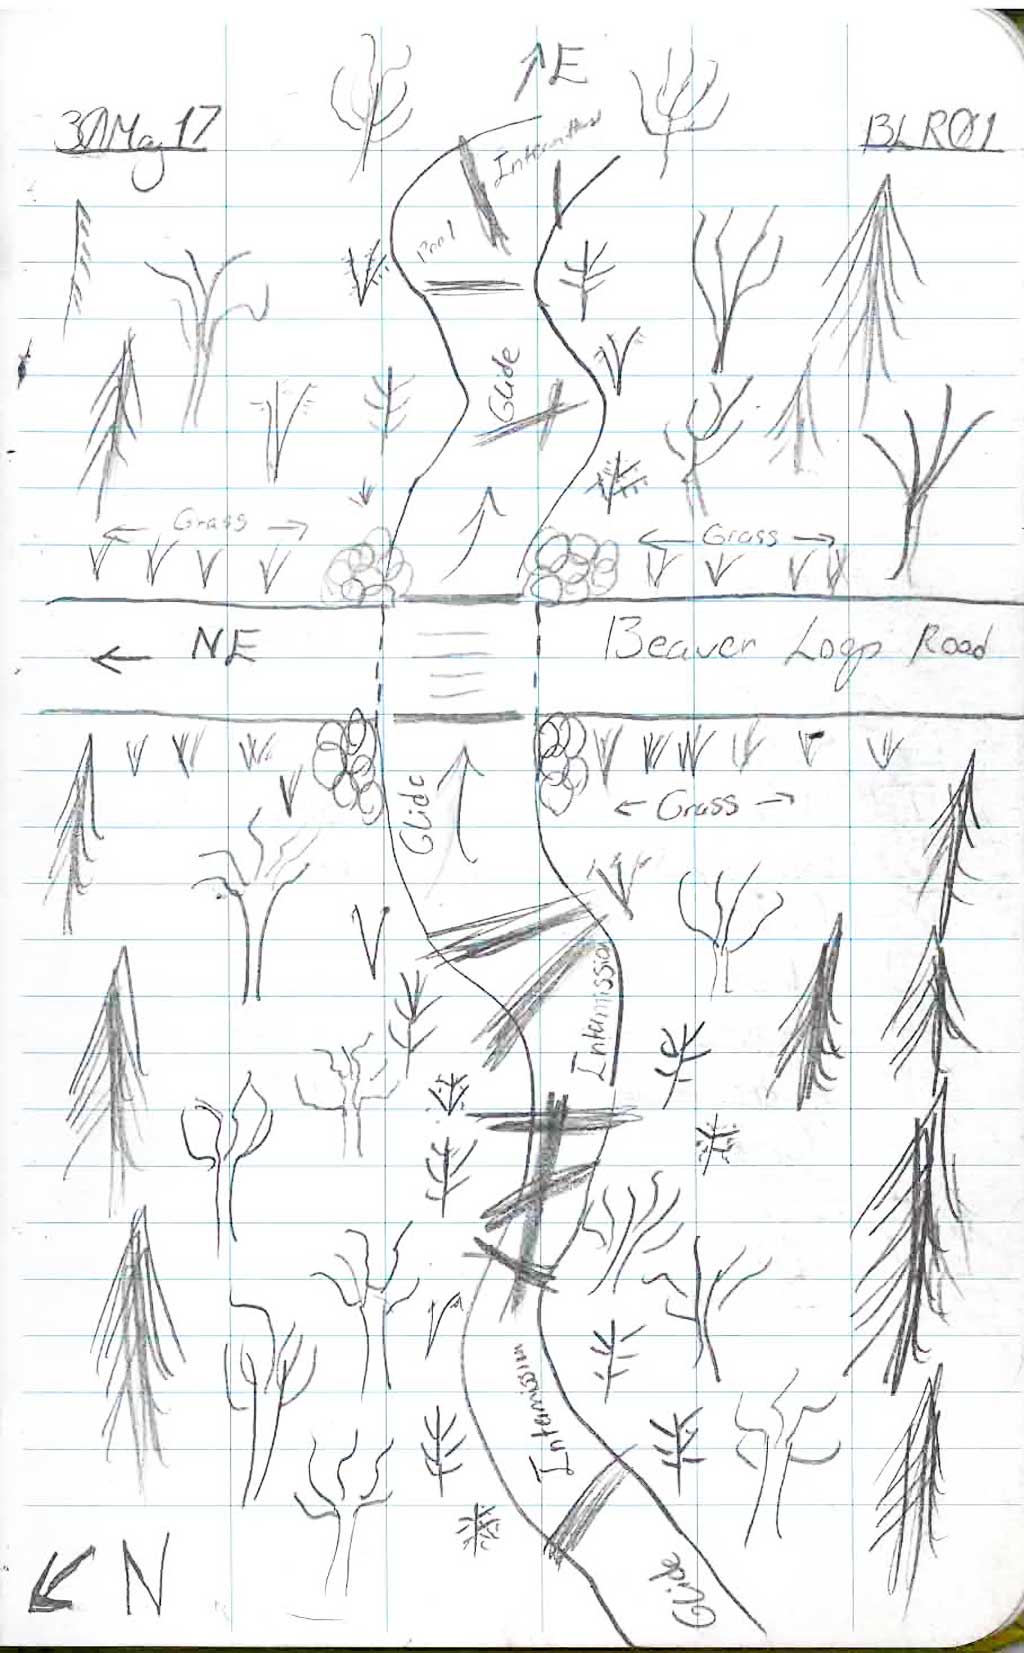 E
30May17
BLR01
Pool
Glide
Grass
Grass
NE
Beaver Loop Road
Glide
Grass
Intermission
Intermission
N
Glide